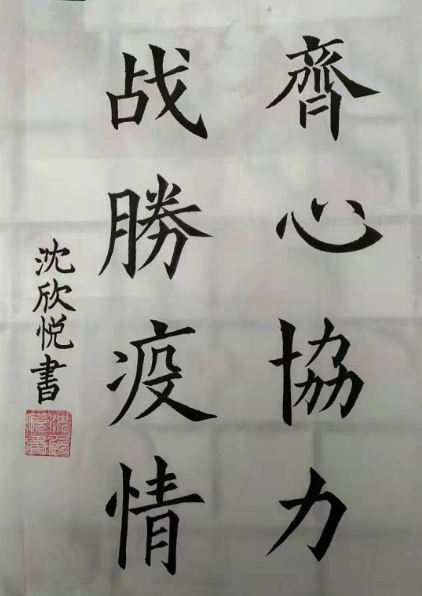 齊心協力
战勝疫情
沈欣悦書